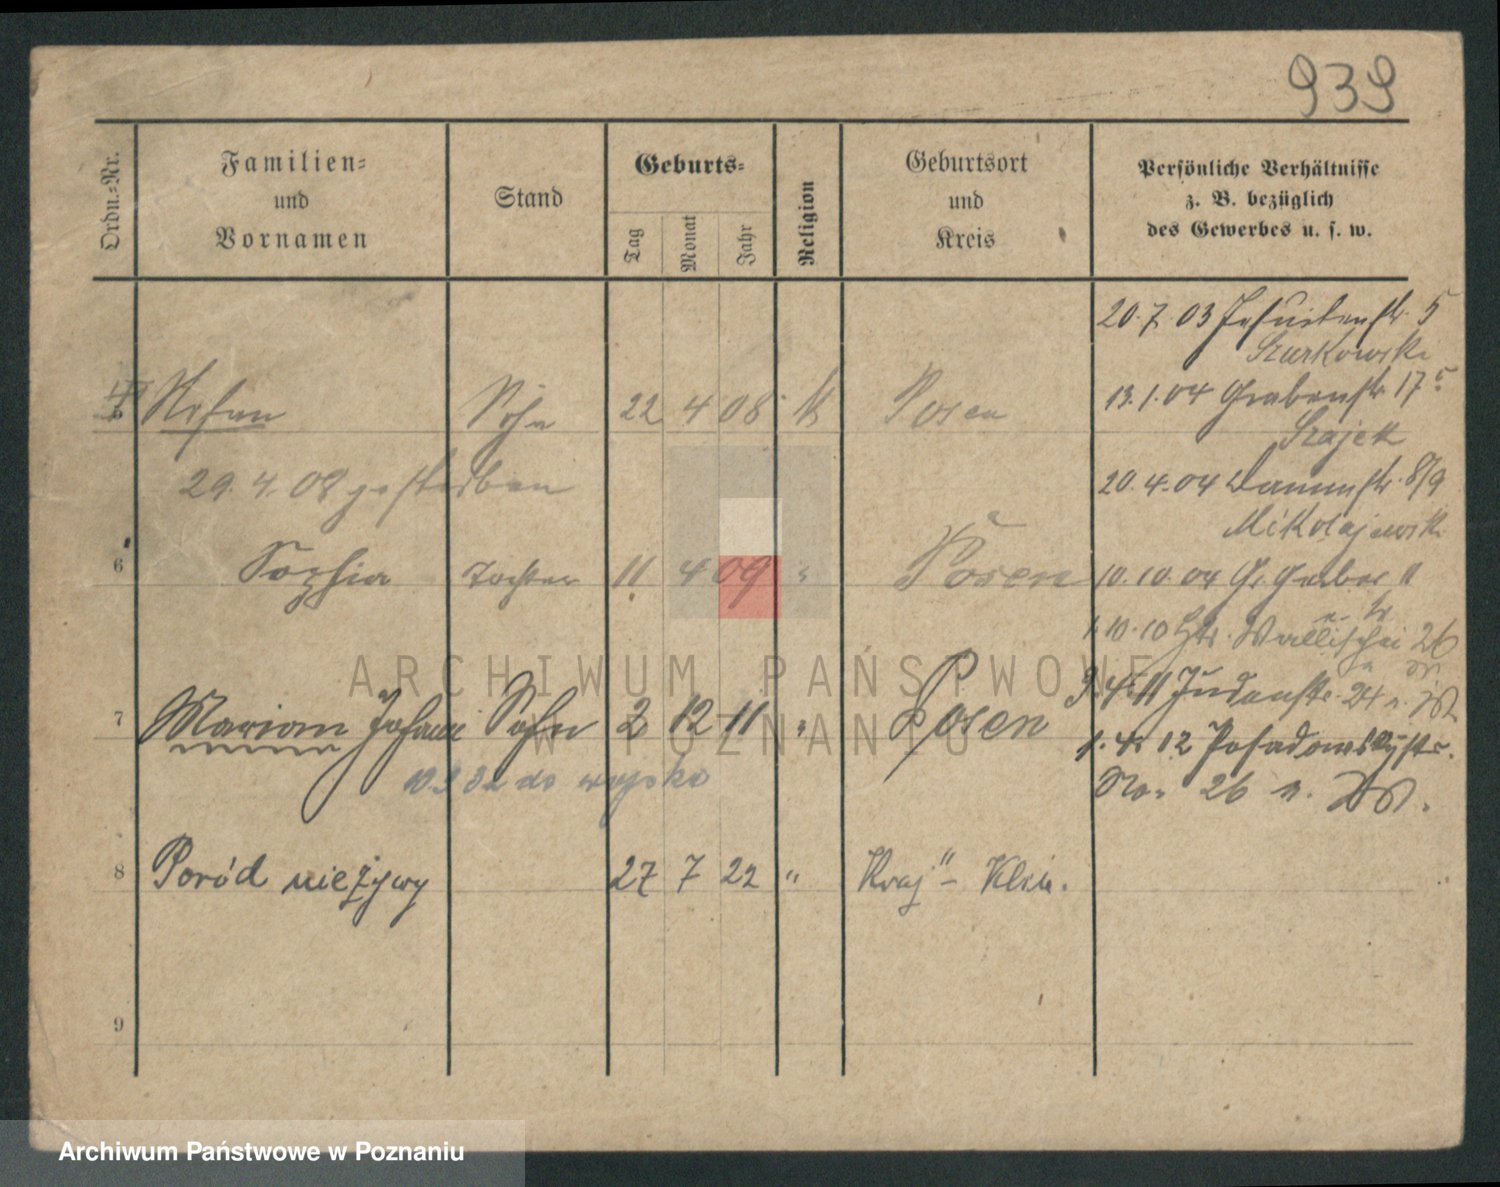 939
Ordn.-Nr.
Familien-
und
Vornamen
Stand
Geburts-
Tag
Monat
Jahr
Religion
Geburtsort
und
Kreis
Persönliche Verhältnisse
z. B. bezüglich
des Gewerbes u. s. w.
20.7.03 Jesuitenstr. 5
Szurkowski
13.1.04 Grabenstr. 17
Szajek
20.4.04 Dammstr. 8/9
Mikolajewski
10.10.04 Gr. Gerber 11
1.10.10 Wallischei 26
3.4.11 Judenstr. 24
1.4.12 Posadowskystr.
No. 26
Sohn 22 4 08 k Posen
29.4.08 gestorben
6 Sophia Tochter 11 4 09 " Posen
7 Marian Johann Sohn 2 12 11 " Posen
do wojska
8 Poród nieżywy 27 7 22 " Kraj. Klin.
9
ARCHIWUM PAŃSTWOWE
W POZNANIU
Archiwum Państwowe w Poznaniu